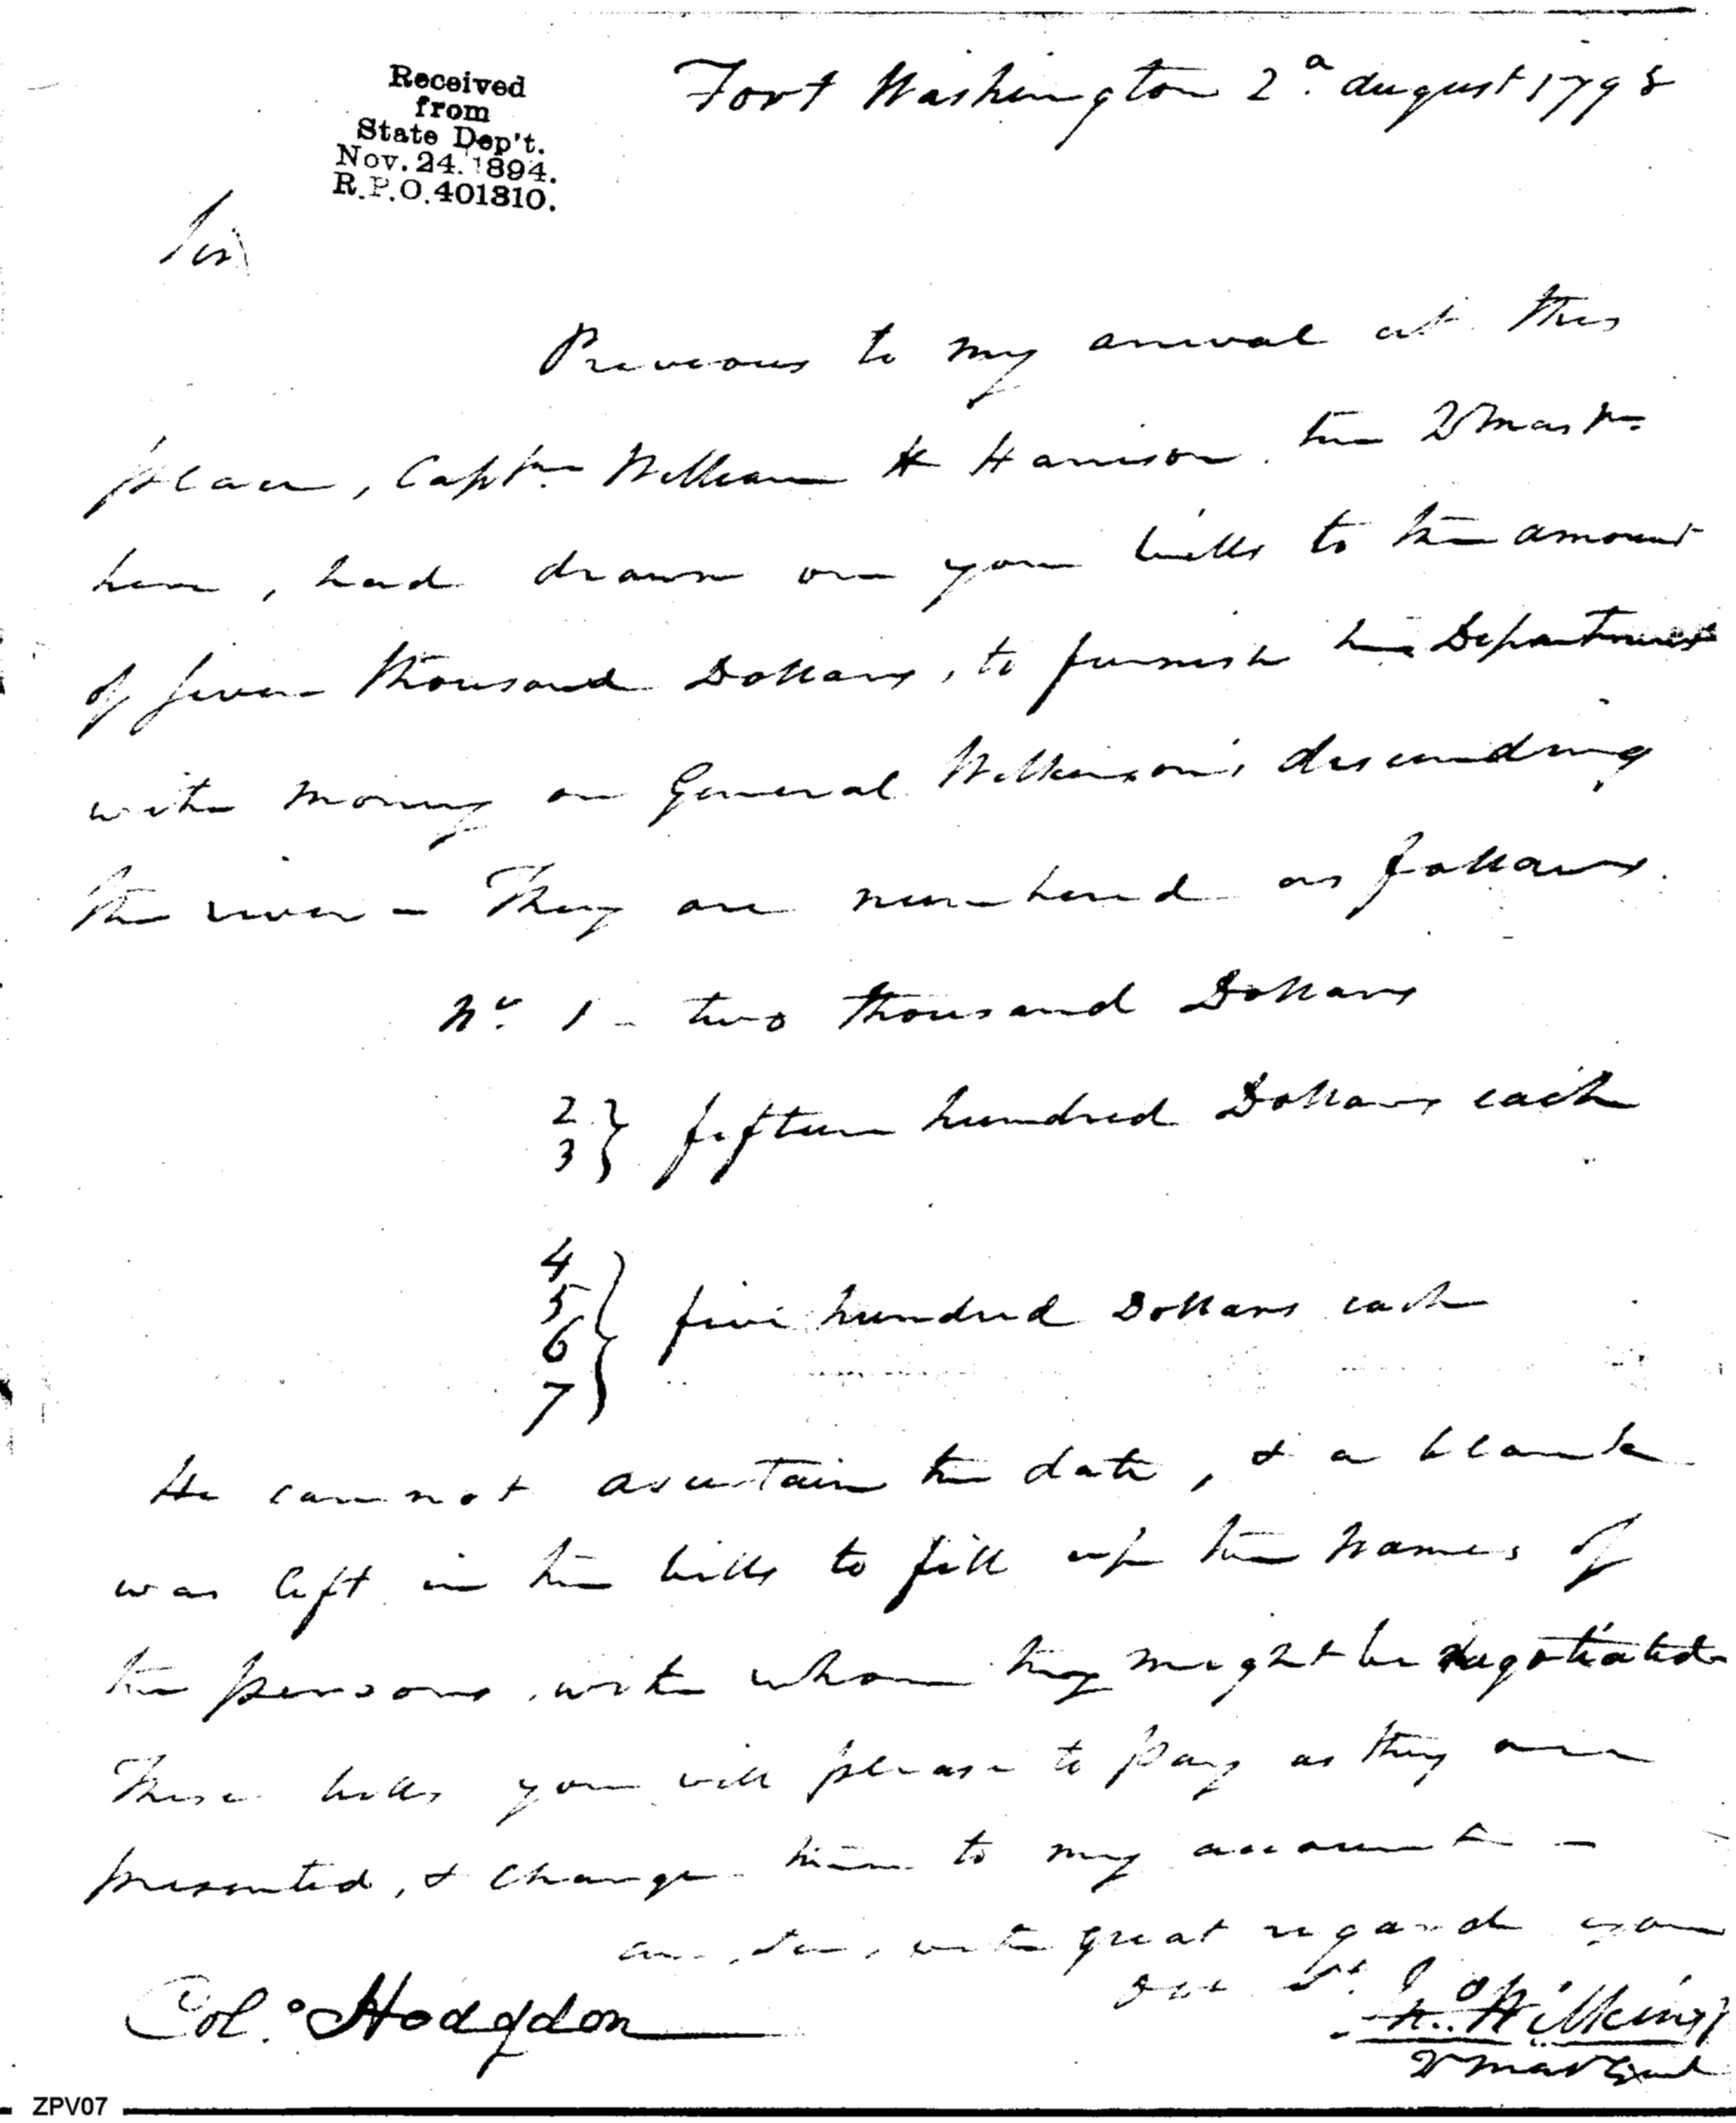 Received
from
State Dep't.
Nov. 24. 1894.
R.P.O. 401310.
Fort Washington 2d. august 1798
Sir
Previous to my arrival at this
place, Captn. William H Harrison the QMastr.
here, had drawn on you bills to the amount
of seven thousand Dollars, to furnish the Department
with money on General Wilkinson's descending
the river - They are numbered as follows.
No. 1 - two thousand Dollars
2
3 } fifteen hundred Dollars each
4
5
6 } five hundred Dollars each
7
He cannot ascertain the date, & a blank
was left in the bills to fill up the names of
the persons, with whom they might be negotiated
These bills you will please to pay as they are
presented, & charge them to my account -
am, Sir, with great regard your
obe St.
Colo. Hodgdon
Jno Wilkins
QMastGenl
ZPV07